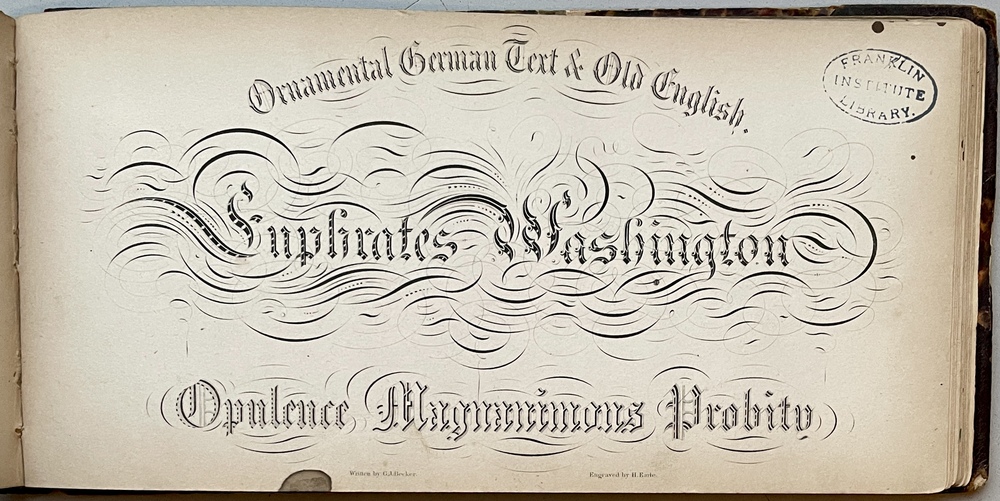 Ornamental German Text & Old English.
FRANKLIN
INSTITUTE
LIBRARY.
Euphrates Washington
Opulence Magnanimous Probity
Written by G.J.Becker.
Engraved by H.